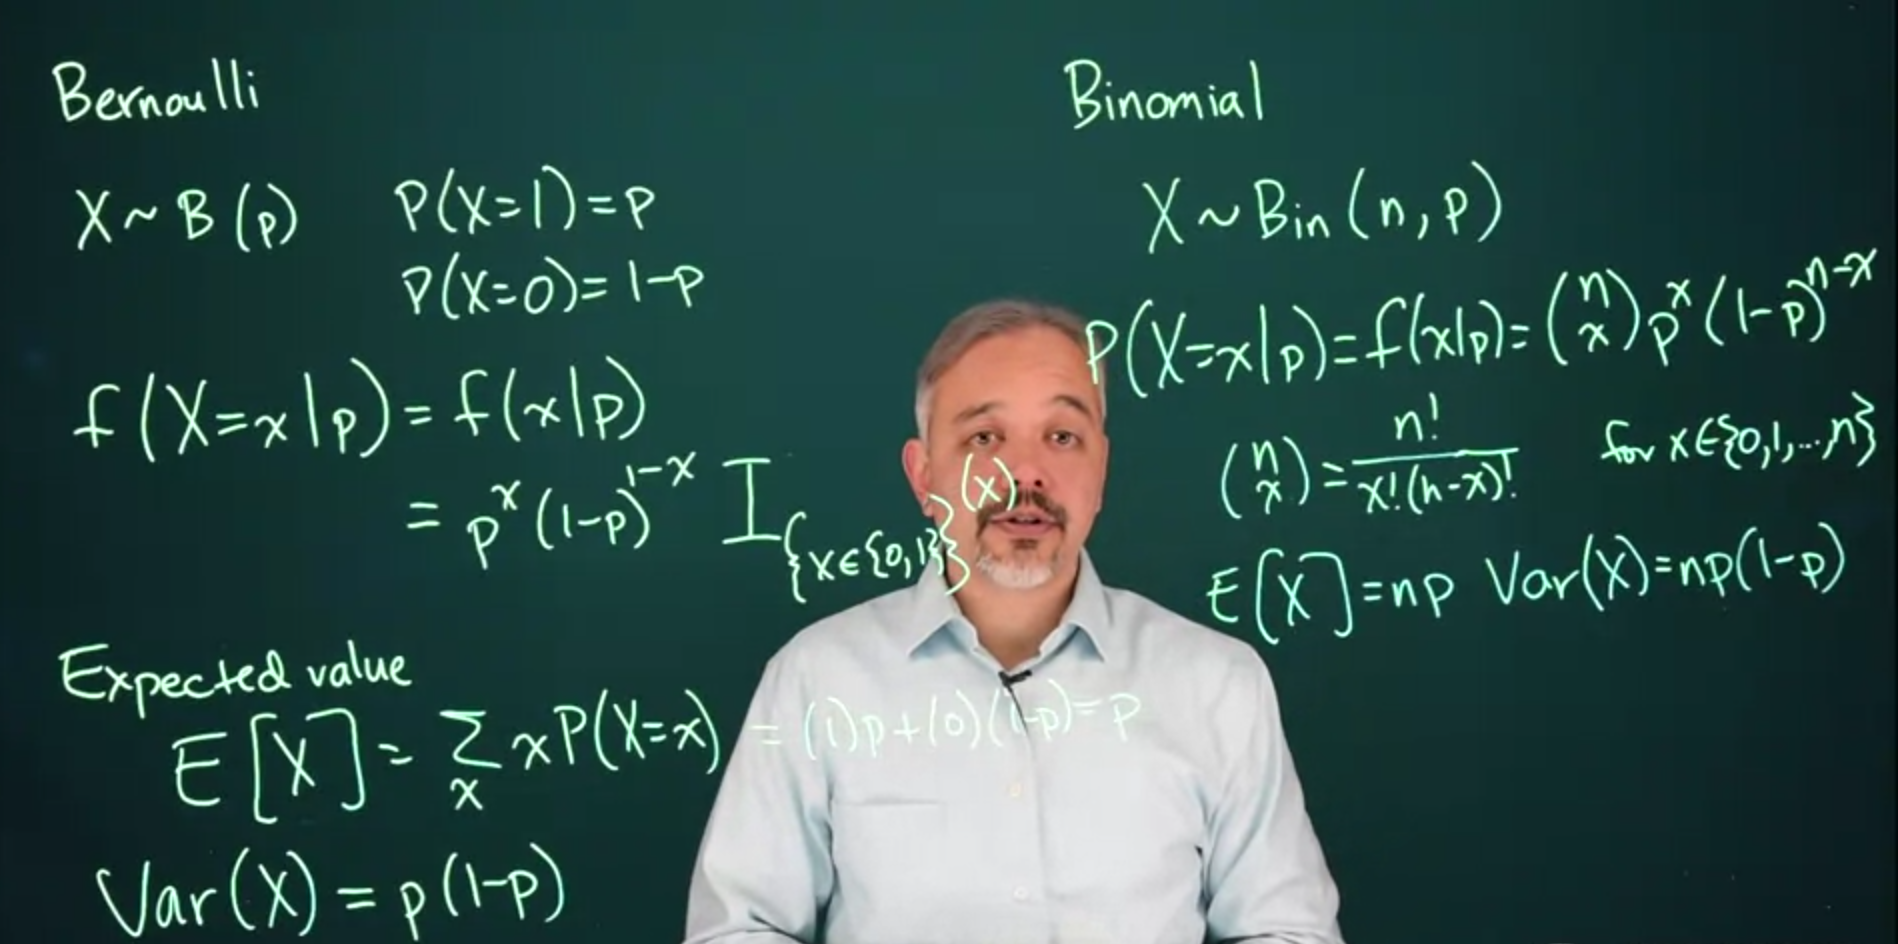 Bernoulli
X ~ B(p) P(X=1)=p
P(X=0)=1-p
f(X=x|p)=f(x|p)
= p^x (1-p)^{1-x} I_{{x∈{0,1}}}(x)
Expected value
E[X] = Σ_x x P(X=x) = (1)p+(0)(1-p)=p
Var(X) = p(1-p)
Binomial
X ~ Bin(n,p)
P(X=x|p)=f(x|p)=(n x) p^x (1-p)^{n-x}
(n x) = n!/x!(n-x)! for x∈{0,1,...,n}
E[X]=np Var(X)=np(1-p)